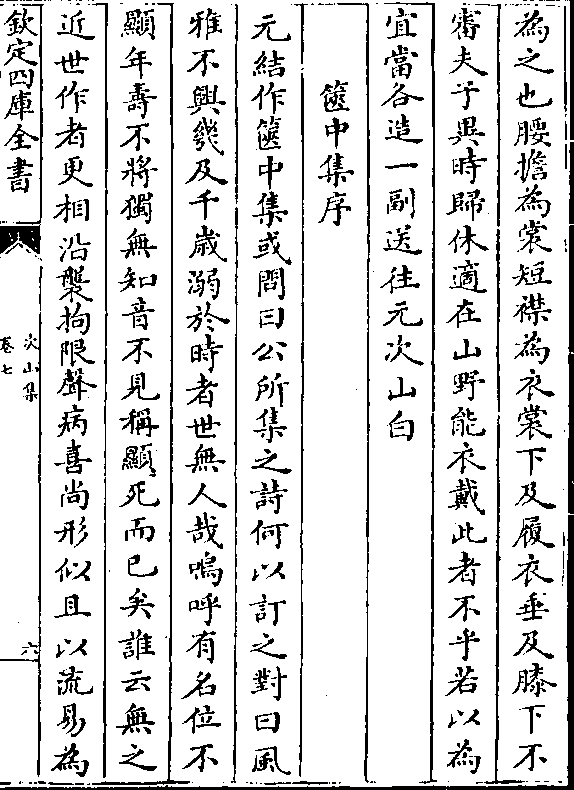 為之也腰擔為裳短襟為衣裳下及履衣垂及膝下不
審夫子異時歸休適在山野能衣戴此者不乎若以為
宜當各造一副送往元次山白
篋中集序
元結作篋中集或問曰公所集之詩何以訂之對曰風
雅不興幾及千歲溺於時者世無人哉嗚呼有名位不
顯年壽不將獨無知音不見稱顯死而已矣誰云無之
近世作者更相沿襲拘限聲病喜尚形似且以流易為
欽定四庫全書
次山集
卷七
六